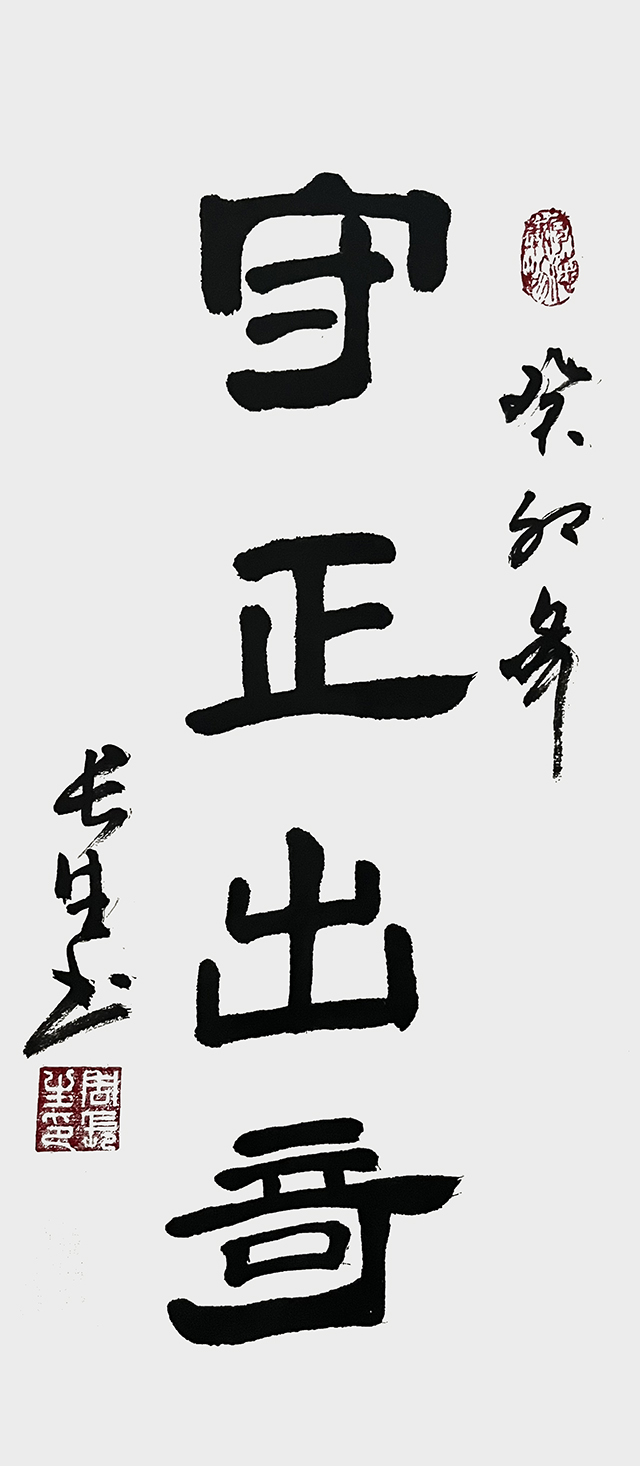 癸卯年
守正出奇
长生书
周长生印